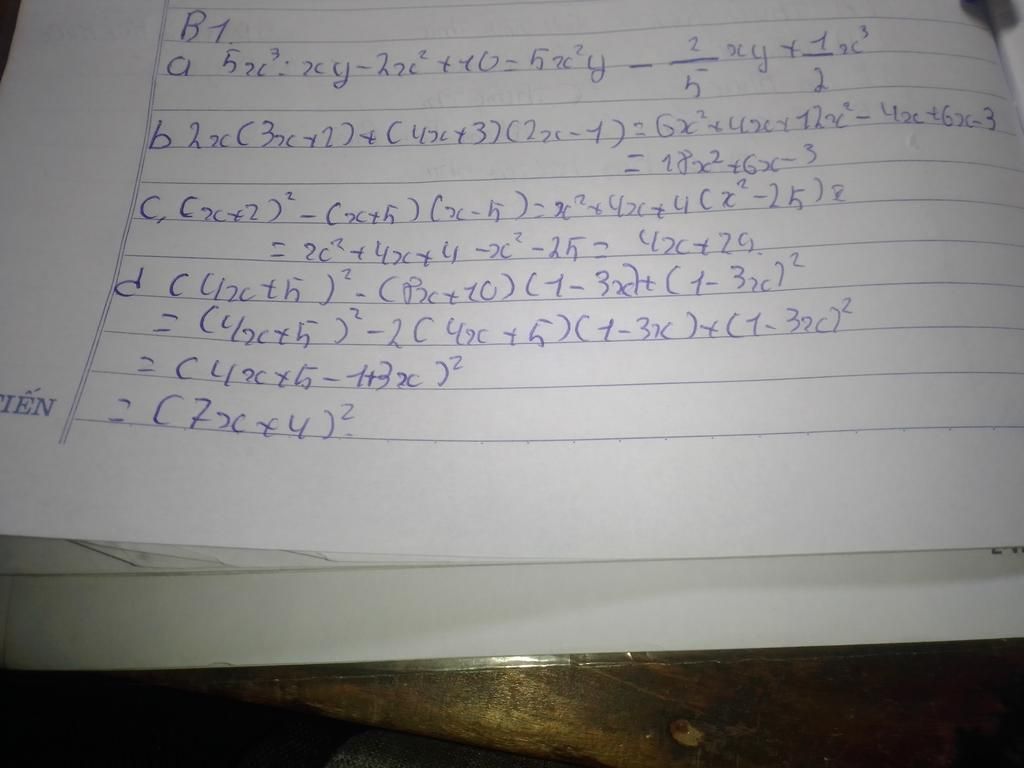 B1.
a 5x³: xy - 2x² + 10 = 5x²y - 2/5 xy + 1/2 x³
b 2x(3x+2)+(4x+3)(2x-1) = 6x²+4x+12x²-4x+6x-3
= 18x²+6x-3
C, (x+2)² - (x+5)(x-5) = x²+4x+4(x²-25)
= x²+4x+4-x²-25 = 4x+29.
d (4x+5)² - (8x+10)(1-3x)+(1-3x)²
= (4x+5)² - 2(4x+5)(1-3x)+(1-3x)²
= (4x+5-1+3x)²
TIẾN
= (7x+4)².